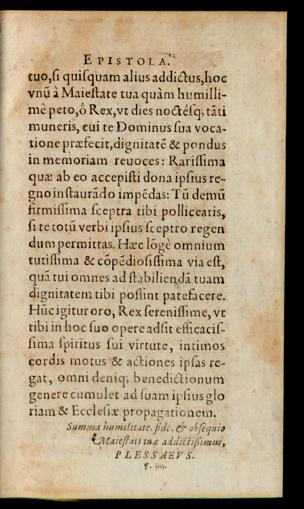 EPISTOLA.
tuo, si quisquam alius addictus, hoc
vnũ à Maiestate tua quàm humilli-
mè peto, ô Rex, vt dies noctésq; tãti
muneris, cui te Dominus sua voca-
tione præfecit, dignitatẽ & pondus
in memoriam reuoces: Rarissima
quæ ab eo accepisti dona ipsius re-
gno instaurãdo impẽdas: Tũ demũ
firmissima sceptra tibi pollicearis,
si te totũ verbi ipsius sceptro regen
dum permittas. Hæc lõgè omnium
tutissima & cõpẽdiosissima via est,
quã tui omnes ad stabiliendã tuam
dignitatem tibi possint patefacere.
Hũc igitur oro, Rex serenissime, vt
tibi in hoc suo opere adsit efficacis-
sima spiritus sui virtute, intimos
cordis motus & actiones ipsas re-
gat, omni deniq; benedictionum
genere cumulet ad suam ipsius glo
riam & Ecclesiæ propagationem.
Summa humilitate, fide, & obsequio
Maiestati tuæ addictissimus,
PLESSAEVS.
¶. iiij.